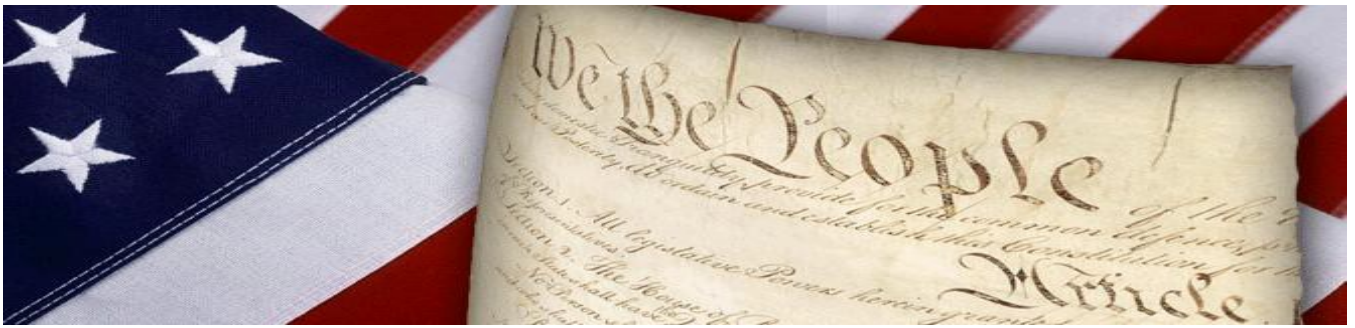 We the People of the
domestic Tranquility, provide for the common defence,
Posterity, do ordain and establish this Constitution for
Article
Section 1. All legislative Powers herein
of Representatives.
Section. 2. The House of
State shall have
No Person